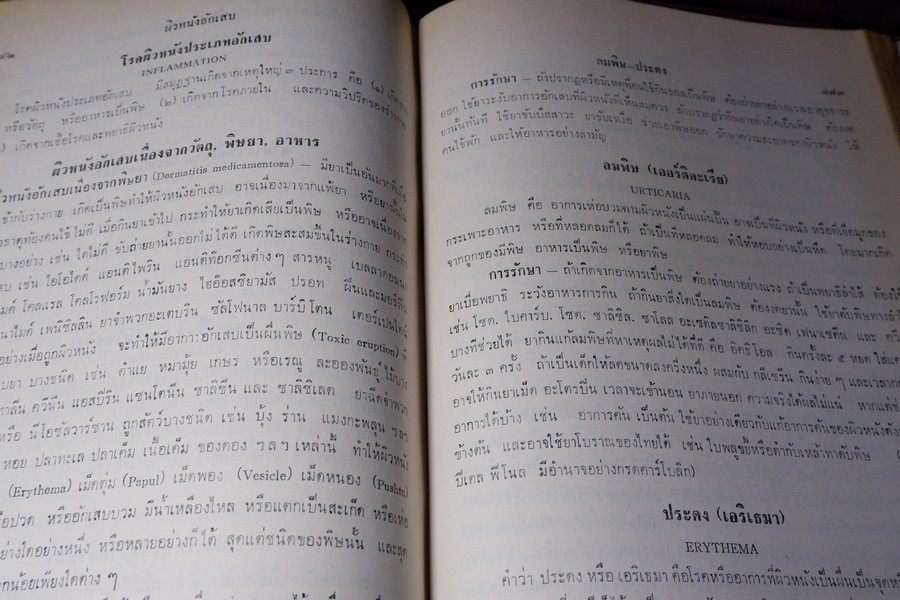 ๔๒
ผิวหนังอักเสบ
โรคผิวหนังประเภทอักเสบ
INFLAMMATION
โรคผิวหนังประเภทอักเสบ มีสมุฏฐานเกิดจากเหตุใหญ่ ๓ ประการ คือ (๑) เกิดจาก
หรือวัตถุ หรืออาหารเป็นพิษ (๒) เกิดจากโรคภายใน และความวิปริตของร่างกาย
) เกิดจากเชื้อโรคและพยาธิผิวหนัง
ผิวหนังอักเสบเนื่องจากวัตถุ, พิษยา, อาหาร
วหนังอักเสบเนื่องจากพิษยา (Dermatitis medicamentosa) — มียาเป็นอันมากที่เมื่อ
เข้ากับร่างกาย เกิดเป็นพิษทำให้ผิวหนังอักเสบ อาจเนื่องมาจากแพ้ยา หรือยานั้นไม่
ธาตุท้องคนไข้ ไม่ดี เมื่อกินยาเข้าไป กระทำให้ยาเกิดเสียเป็นพิษ หรืออาจเนื่องจาก
บางอย่าง เช่น ไตไม่ดี ขับถ่ายยานั้นออกไม่ได้ดี เกิดพิษสะสมขึ้นในร่างกาย กระทำ
ขบ เช่น ไอโอไดด์ แอนติไพริน แอนติท็อกซีนต่าง ๆ สารหนู เบลลาดอนนา
ไมด์ โคลแรล โคลโรฟอร์ม น้ำมันยาง ไฮอ๊อสซิยามัส ปรอท ฝิ่นและมอร์ฟีน
นาไมด์ เพนิซิลลิน ยาจำพวกอะเตบริน ซัลโฟนาล บาร์บิโตน เตอร์เปนไตน์
อย่างเมื่อถูกผิวหนัง จะทำให้มีอาการอักเสบเป็นผื่นพิษ (Toxic eruption)
บยา บางชนิด เช่น ตำแย หมามุ้ย เกษร หรือเรณู ละอองพันธุ์ไม้บาง
ทาลีน ควินีน แอสปิริน แซนโตนีน ซาลิซีน และ ซาลิซิเลต ยาฉีดจำพวก
หรือ นีโอซัลวาร์ซาน ถูกสัตว์บางชนิด เช่น บุ้ง ร่าน แมงกะพลุน ฯลฯ
หอย ปลาทะเล ปลาเค็ม เนื้อเค็ม ของดอง ฯลฯ เหล่านี้ ทำให้ผิวหนัง
(Erythema) เม็ดตุ่ม (Papul) เม็ดพอง (Vesicle) เม็ดหนอง (Pushtu
รือปวด หรืออักเสบบวม มีน้ำเหลืองไหล หรือแตกเป็นสะเก็ด หรือเห่อ
ย่างใดอย่างหนึ่ง หรือหลายอย่างก็ได้ สุดแต่ชนิดของพิษนั้น และสุด
กน้อยเพียงใดต่าง ๆ
ลมพิษ—ประดง
๔๔๓
การรักษา — ถ้าปรากฏหรือมีเหตุที่คนไข้กินของเป็นพิษ ต้องถ่ายยาอย่างแรงเอาอุจจาระ
ออก ใช้ยาระงับอาการอักเสบที่ผิวหนังที่เห็นสมควร ถ้าปรากฏว่ากินยาอย่างใดเป็นพิษ ต้องงด
ยานั้นทันที ใช้ยาขับปัสสาวะ ยาขับเหงื่อ ช่วยเอาพิษออก รักษาความสะอาดของผิวหนัง ให้
คนไข้พัก และให้อาหารอย่างสามัญ
ลมพิษ (เออร์ติคะเรีย)
URTICARIA
ลมพิษ คือ อาการเห่อบวมตามผิวหนังเป็นแผ่นปื้น อาจเป็นที่ผิวหนัง หรือที่เยื่อมูกของ
กระเพาะอาหาร หรือที่หลอดลมก็ได้ ถ้าเป็นที่หลอดลม ทำให้หอบอย่างเป็นหืด โดยมากเกิด
จากถูกของมีพิษ อาหารเป็นพิษ หรือยาพิษ
การรักษา — ถ้าเกิดจากอาหารเป็นพิษ ต้องถ่ายยาอย่างแรง ถ้าเป็นพยาธิลำไส้ ต้องให้
ยาเบื่อพยาธิ ระวังอาหารการกิน ถ้ากินยาสิ่งใดเป็นลมพิษ ต้องงดยานั้น ใช้ยาดับพิษทางลำ
เช่น โซด. ไบคาร์บ. โซด. ซาลิซิล. ซาโลล อะเซติลซาลิซิลิก อะซิด เฟนาเซติน และ
บางทีช่วยได้ ยากินแก้ลมพิษที่หาเหตุผลไม่ได้ที่ดี คือ อิคธิโอล กินครั้งละ ๕ หยด ใส่
วันละ ๓ ครั้ง ถ้าเป็นเด็กให้ลดขนาดลงครึ่งหนึ่ง ผสมกับ กลีเซรีน กินง่าย ๆ และเวลากลาง
อาจให้กินยาเม็ด อะโตรปีน เวลาจะเข้านอน ยาภายนอก ความจริงได้ผลไม่แน่ หากแต่ช่วย
อาการได้บ้าง เช่น อาการคัน เป็นต้น ใช้ยาอย่างเดียวกับแก้อาการคันของผิวหนังดัง
ข้างต้น และอาจใช้ยาโบราณของไทยได้ เช่น ใบพลูขยี้หรือตำกับเหล้าทาดับพิษ (
บีเตล ฟีโนล มีอำนาจอย่างกรดคาร์โบลิก)
ประดง (เอริเธมา)
ERYTHEMA
คำว่า ประดง หรือ เอริเธมา คือโรคหรืออาการที่ผิวหนังเป็นผื่นเป็นจุดหรือ